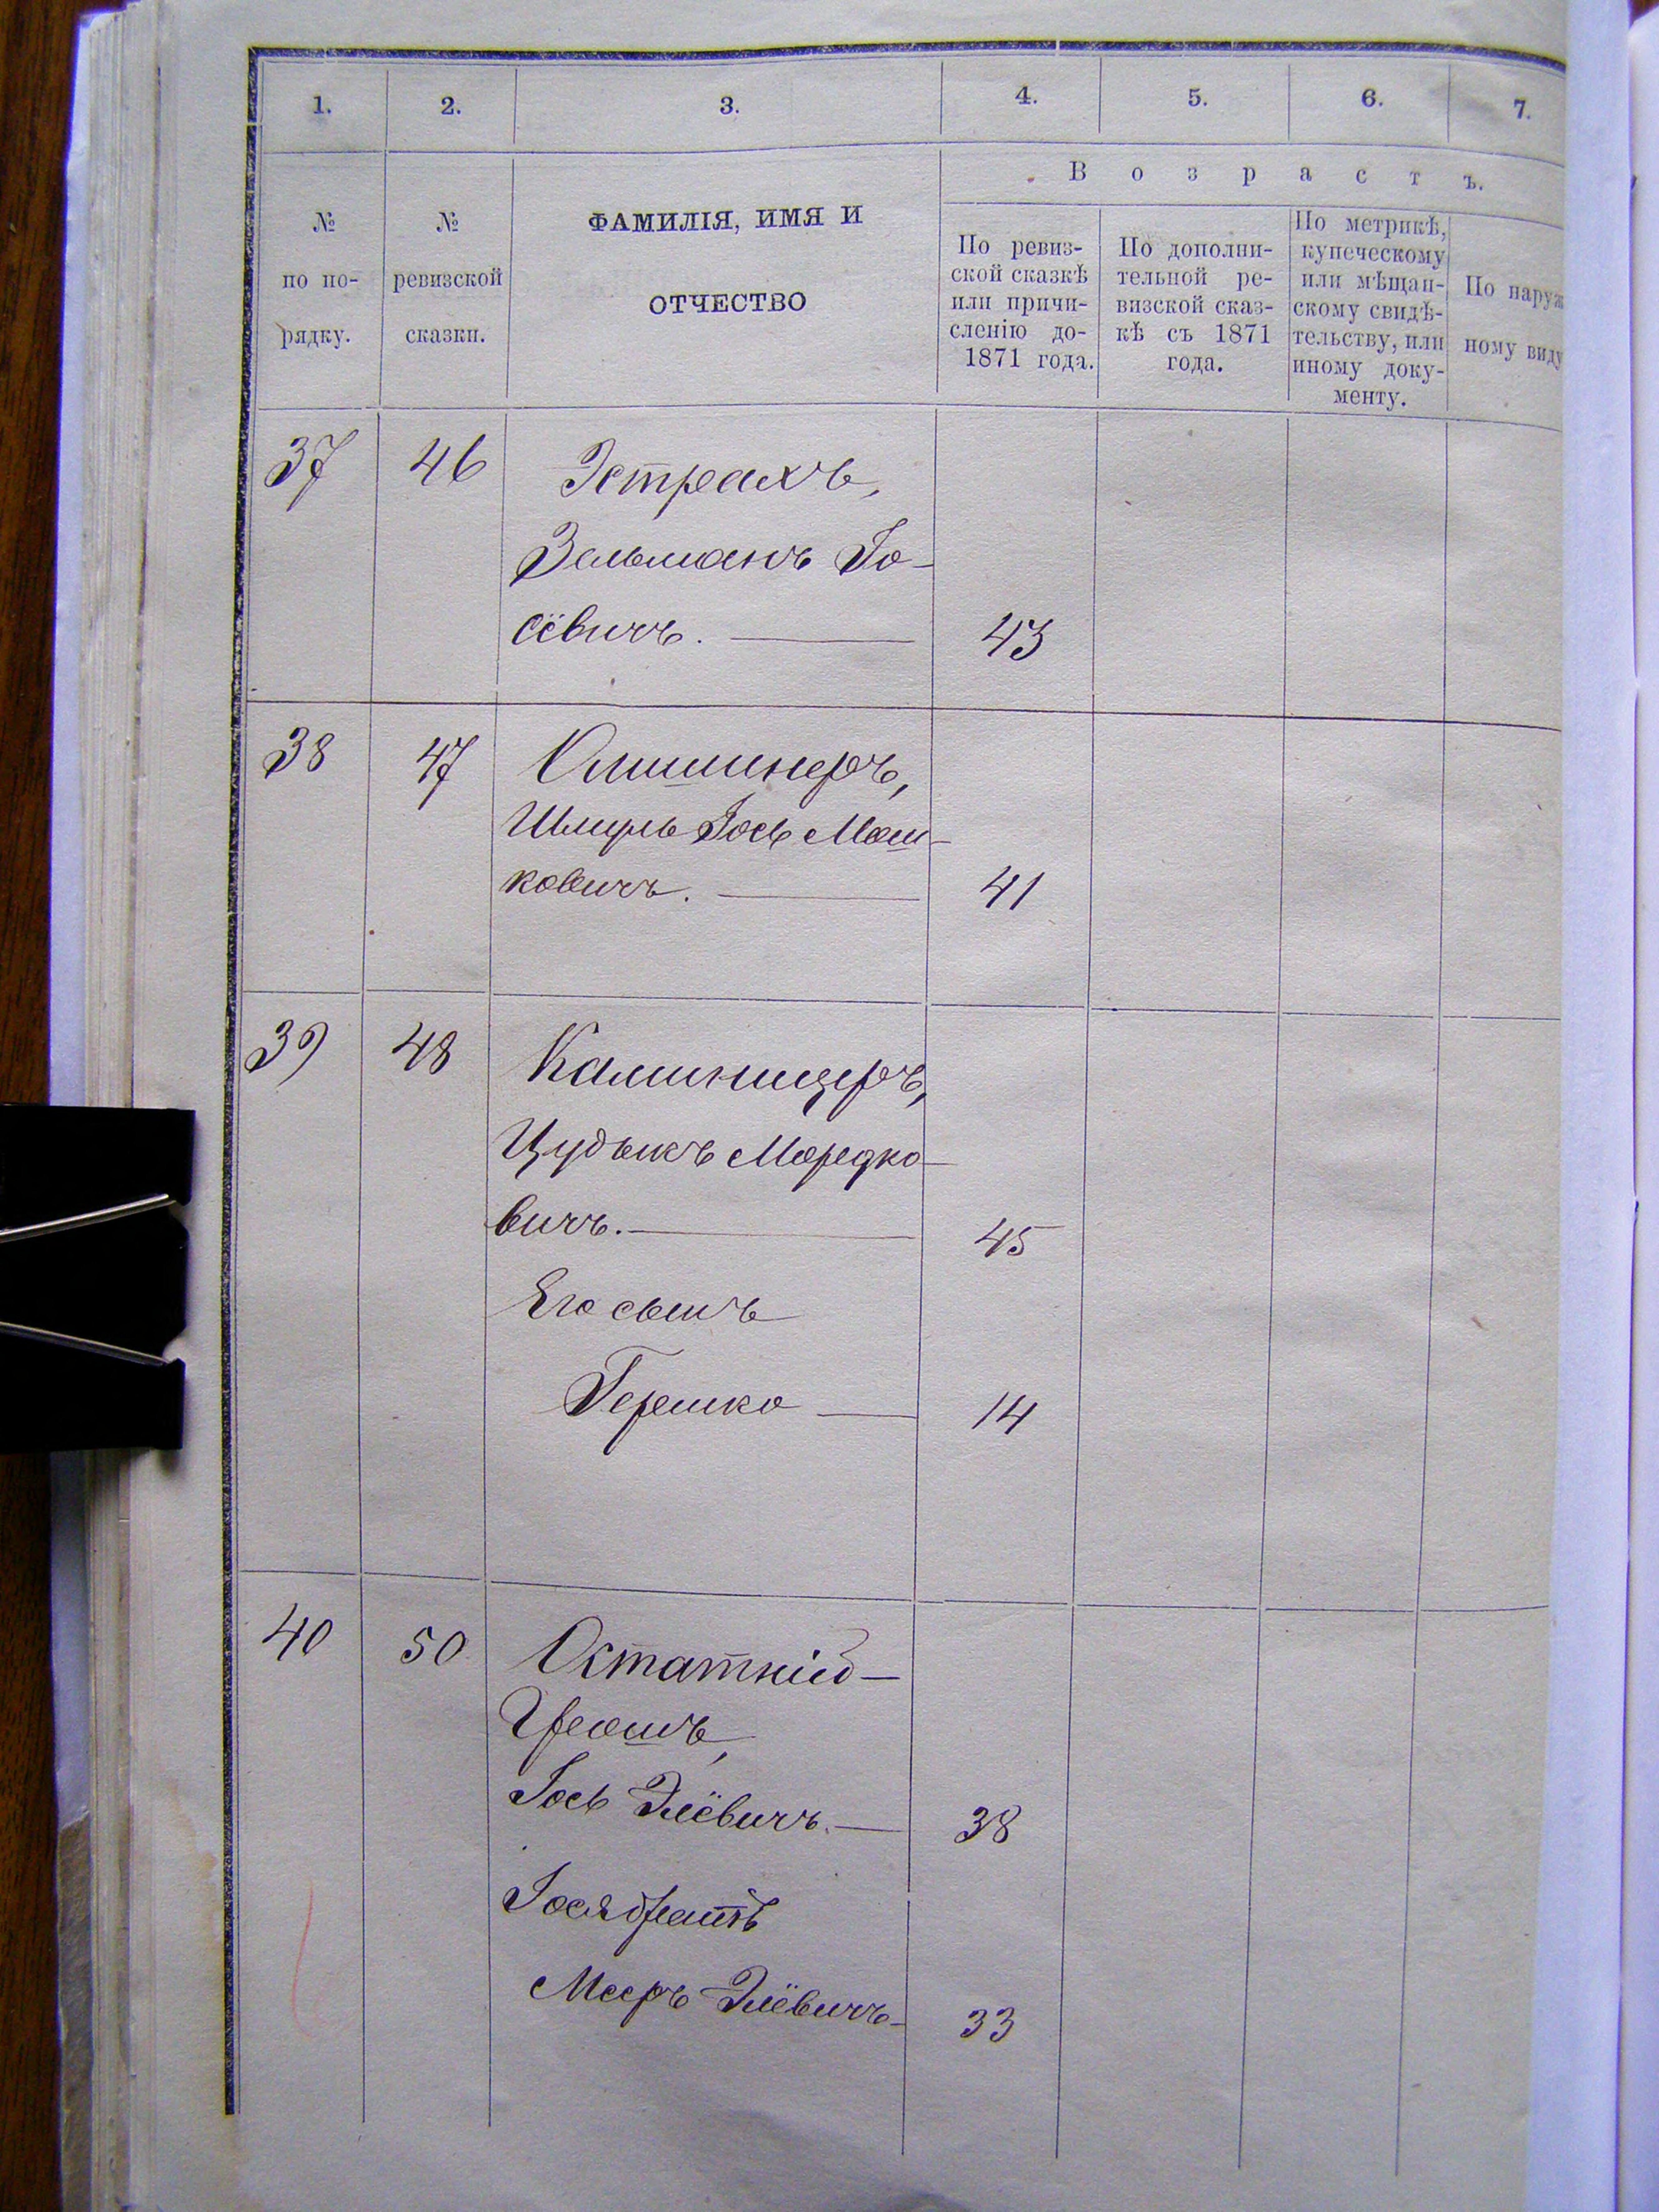 1. 2. 3. 4. 5. 6. 7.
Возрастъ.
№
по по-
рядку.
№
ревизской
сказки.
ФАМИЛІЯ, ИМЯ И
ОТЧЕСТВО
По ревиз-
ской сказкѣ
или причи-
сленію до-
1871 года.
По дополни-
тельной ре-
визской сказ-
кѣ съ 1871
года.
По метрикѣ,
купеческому
или мѣщан-
скому свидѣ-
тельству, или
иному доку-
менту.
По наруж
ному виду
37 46 Эстрахъ,
Зельманъ Іо-
сёвичъ. 43
38 47
Шмуль Іось Мош-
ковичъ. 41
39 48 Каминицеръ,
Цудыкъ Мордко-
вичъ. 45
Его сынъ
Гершко 14
40 50 Остатній-
Іось Элёвичъ. 38
Іося братъ
Мееръ Элёвичъ 33